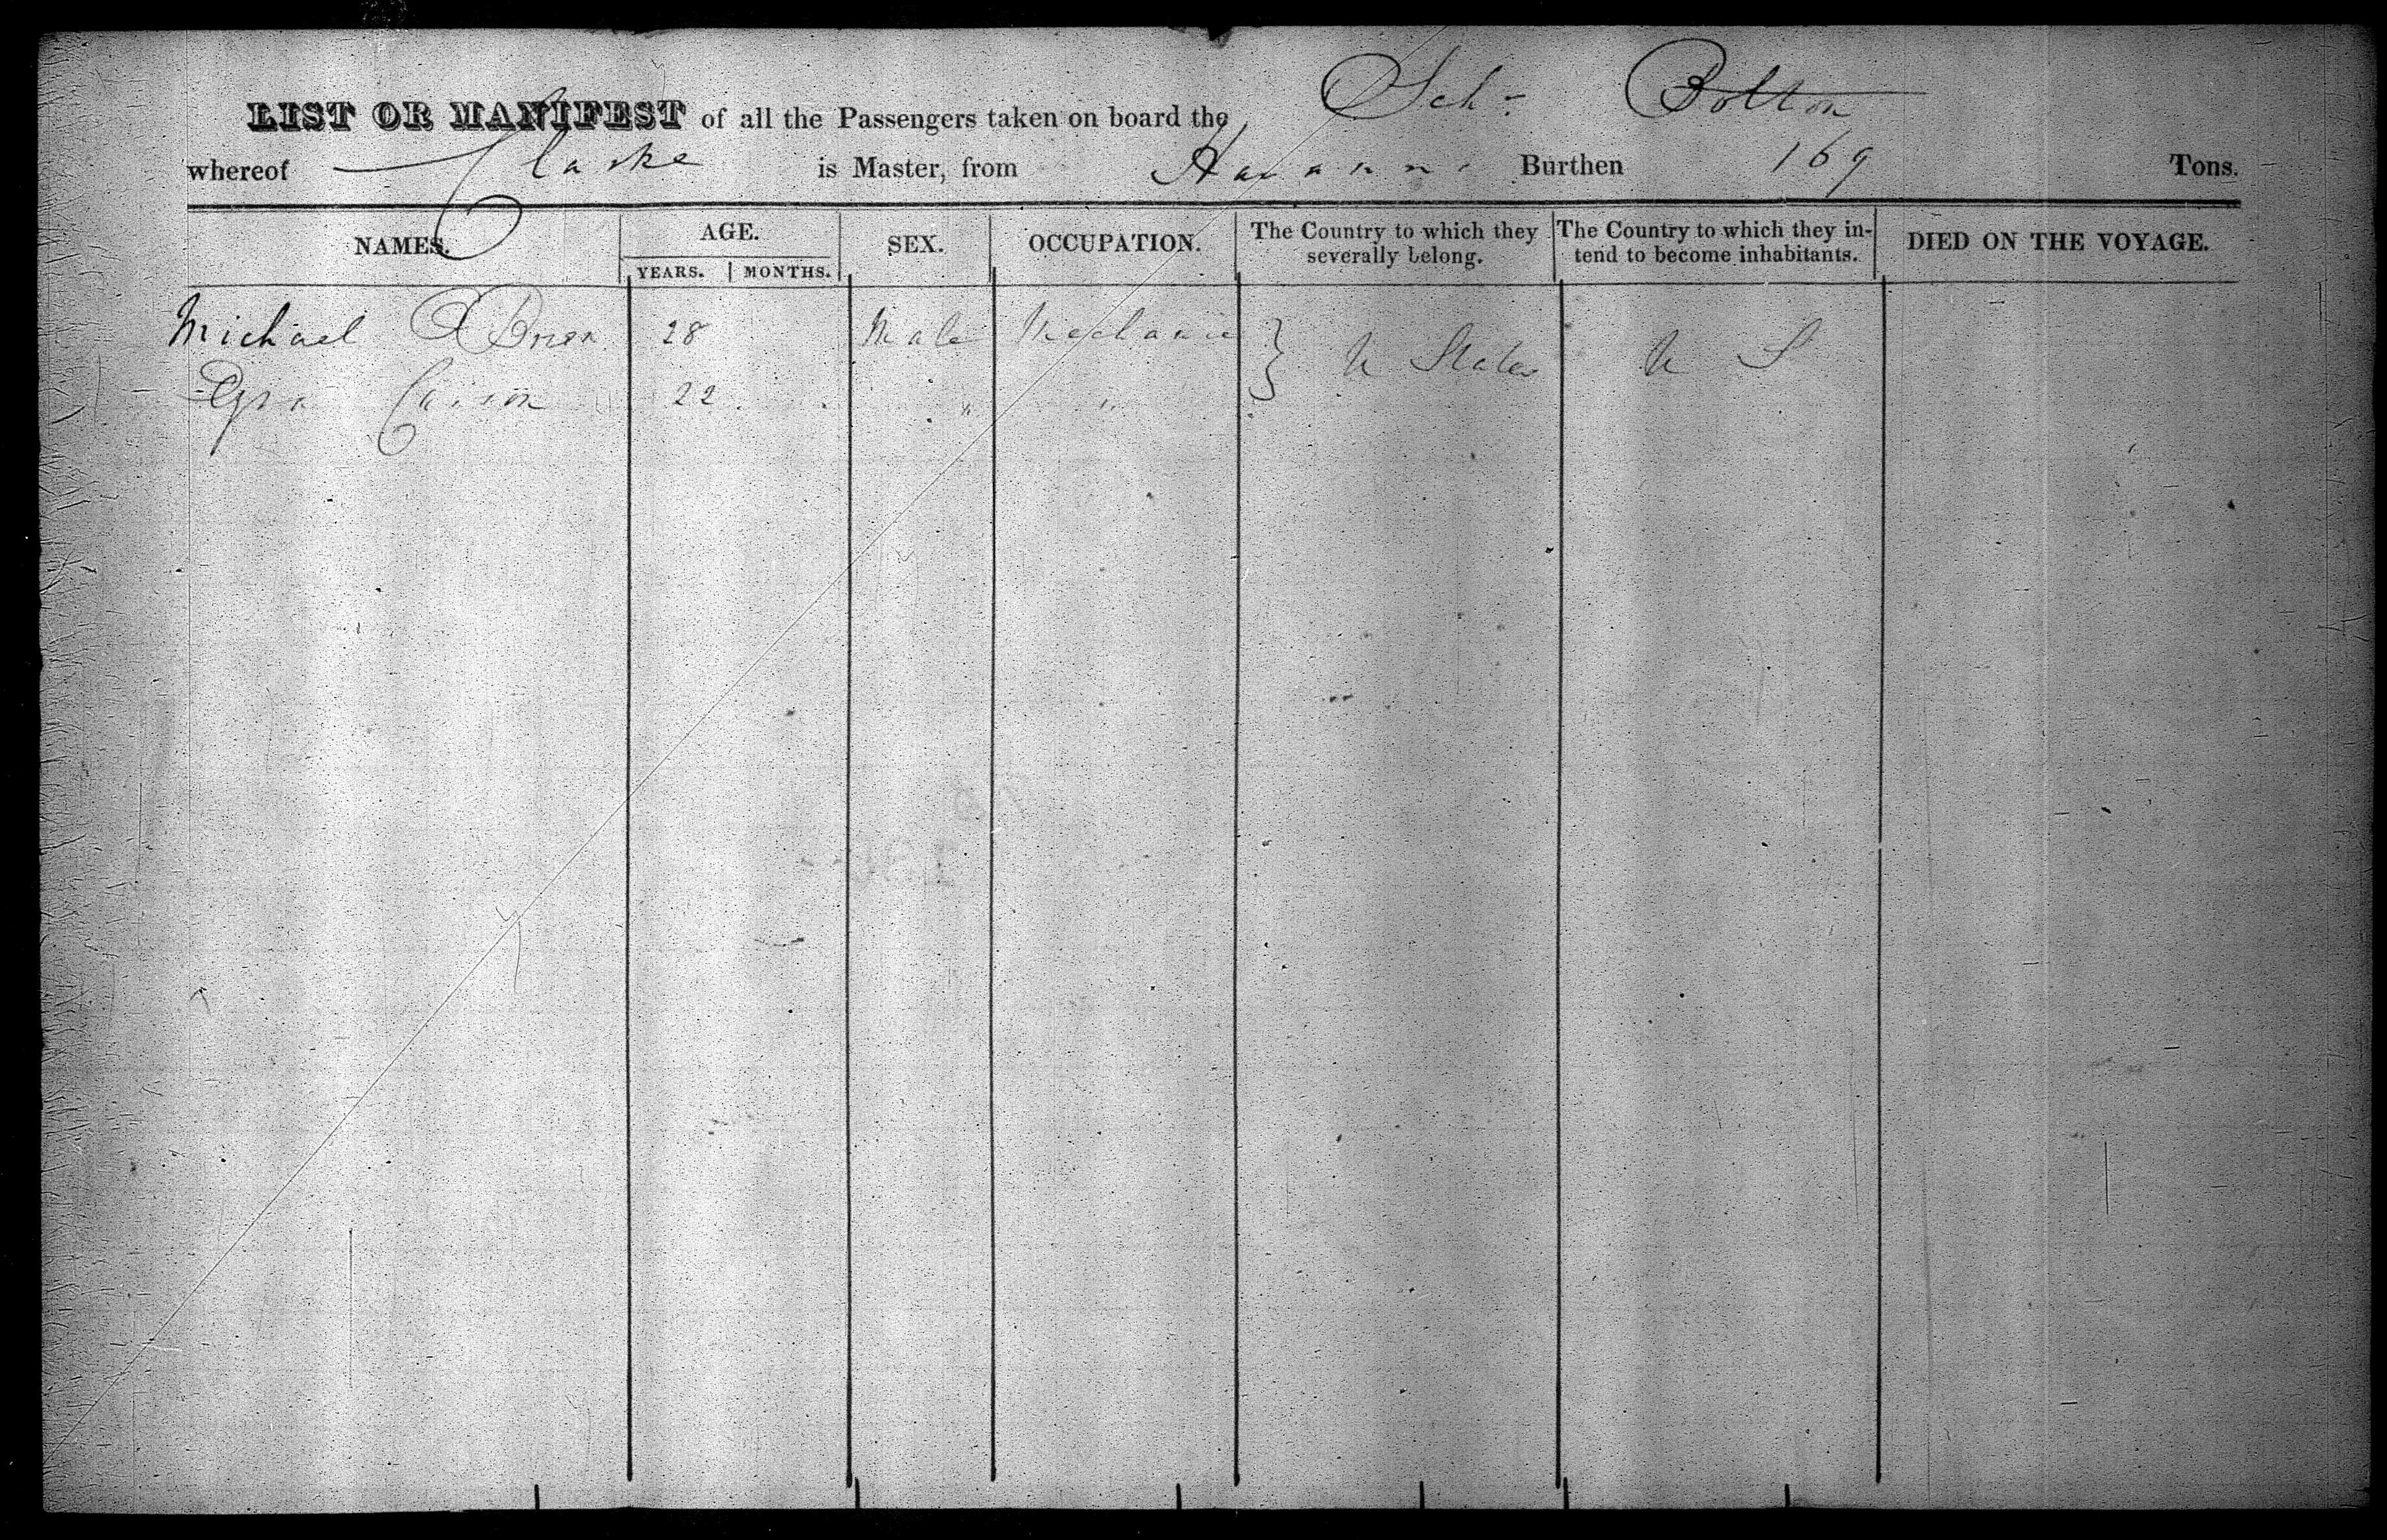 LIST OR MANIFEST of all the Passengers taken on board the Sch- Bolton
whereof Clarke is Master, from Havanna Burthen 169 Tons.
NAMES. AGE. SEX. OCCUPATION. The Country to which they severally belong. The Country to which they intend to become inhabitants. DIED ON THE VOYAGE.
YEARS. MONTHS.
Michael OBrien 28 Male Mechanic } U States U S
22 " "